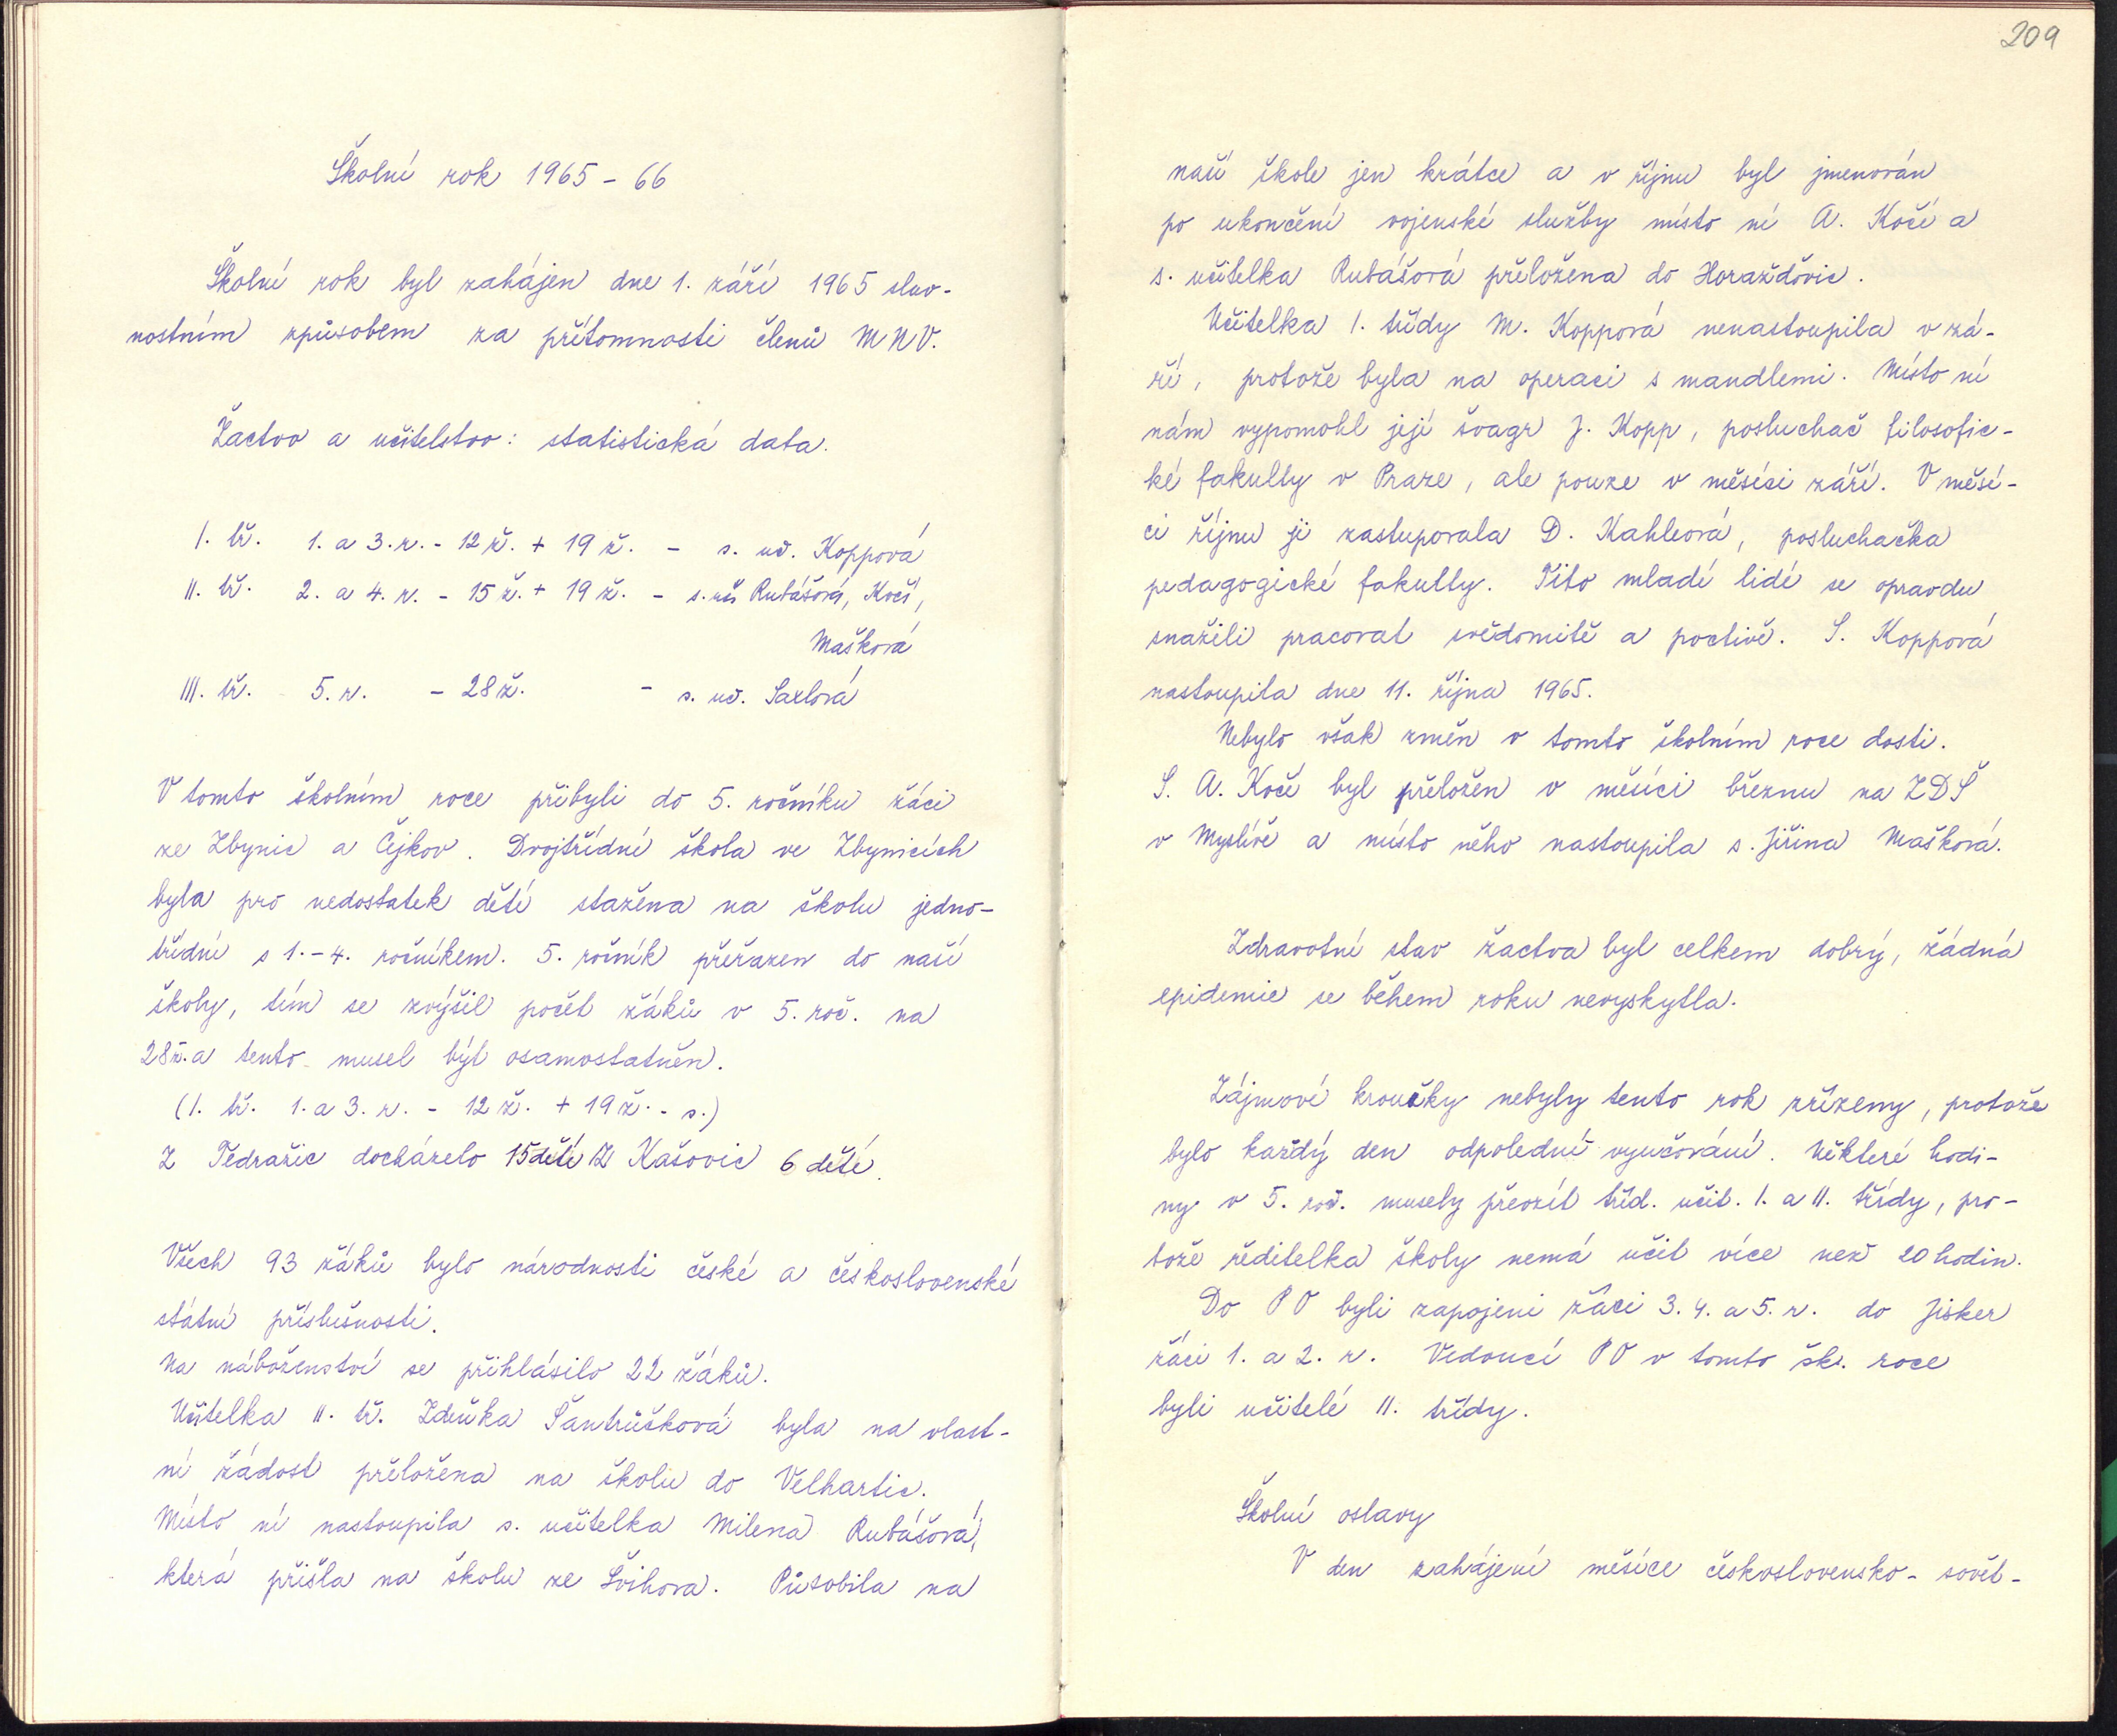 Školní rok 1965 - 66
Školní rok byl zahájen dne 1. září 1965 slav-
nostním způsobem za přítomnosti členů MNV.
Žactvo a učitelstvo: statistická data.
I. tř. 1. a 3. r. - 12 ž. + 19 ž. - s. uč. Koppová
II. tř. 2. a 4. r. - 15 ž. + 19 ž. - s. uč. Rubášová, Kočí,
Mašková
III. tř. 5. r. - 28 ž. - s. uč. Saxlová
V tomto školním roce přibyli do 5. ročníku žáci
ze Zbynic a Čejkov. Dvojtřídní škola ve Zbynicích
byla pro nedostatek dětí stažena na školu jedno-
třídní s 1.-4. ročníkem. 5. ročník přeřazen do naší
školy, tím se zvýšil počet žáků v 5. roč. na
28 ž. a tento musel být osamostatněn.
(I. tř. 1. a 3. r. - 12 ž. + 19 ž. - s.)
Z Tedražic docházelo 15 dětí Z Kašovic 6 dětí.
Všech 93 žáků bylo národnosti české a československé
státní příslušnosti.
Na náboženství se přihlásilo 22 žáků.
Učitelka II. tř. Zdeňka Šantrůšková byla na vlast-
ní žádost přeložena na školu do Velhartic.
Místo ní nastoupila s. učitelka Milena Rubášová,
která přišla na školu ze Švihova. Působila na
209
naší škole jen krátce a v říjnu byl jmenován
po ukončení vojenské služby místo ní A. Kočí a
s. učitelka Rubášová přeložena do Horažďovic.
Učitelka I. třídy M. Koppová nenastoupila v zá-
ří, protože byla na operaci s mandlemi. Místo ní
nám vypomohl její švagr J. Kopp, posluchač filosofic-
ké fakulty v Praze, ale pouze v měsíci září. V měsí-
ci říjnu ji zastupovala D. Kahleová, posluchačka
pedagogické fakulty. Tito mladí lidé se opravdu
snažili pracovat svědomitě a poctivě. S. Koppová
nastoupila dne 11. října 1965.
Nebylo však změn v tomto školním roce dosti.
S. A. Kočí byl přeložen v měsíci březnu na ZDŠ
v Myslívě a místo něho nastoupila s. Jiřina Mašková.
Zdravotní stav žactva byl celkem dobrý, žádná
epidemie se během roku nevyskytla.
Zájmové kroužky nebyly tento rok zřízeny, protože
bylo každý den odpolední vyučování. Některé hodi-
ny v 5. roč. musely převzít tříd. učit. I. a II. třídy, pro-
tože ředitelka školy nemá učit více než 20 hodin.
Do PO byli zapojeni žáci 3. 4. a 5. r. do Jisker
žáci 1. a 2. r. Vedoucí PO v tomto šk. roce
byli učitelé II. třídy.
Školní oslavy
V den zahájení měsíce československo- sovět-